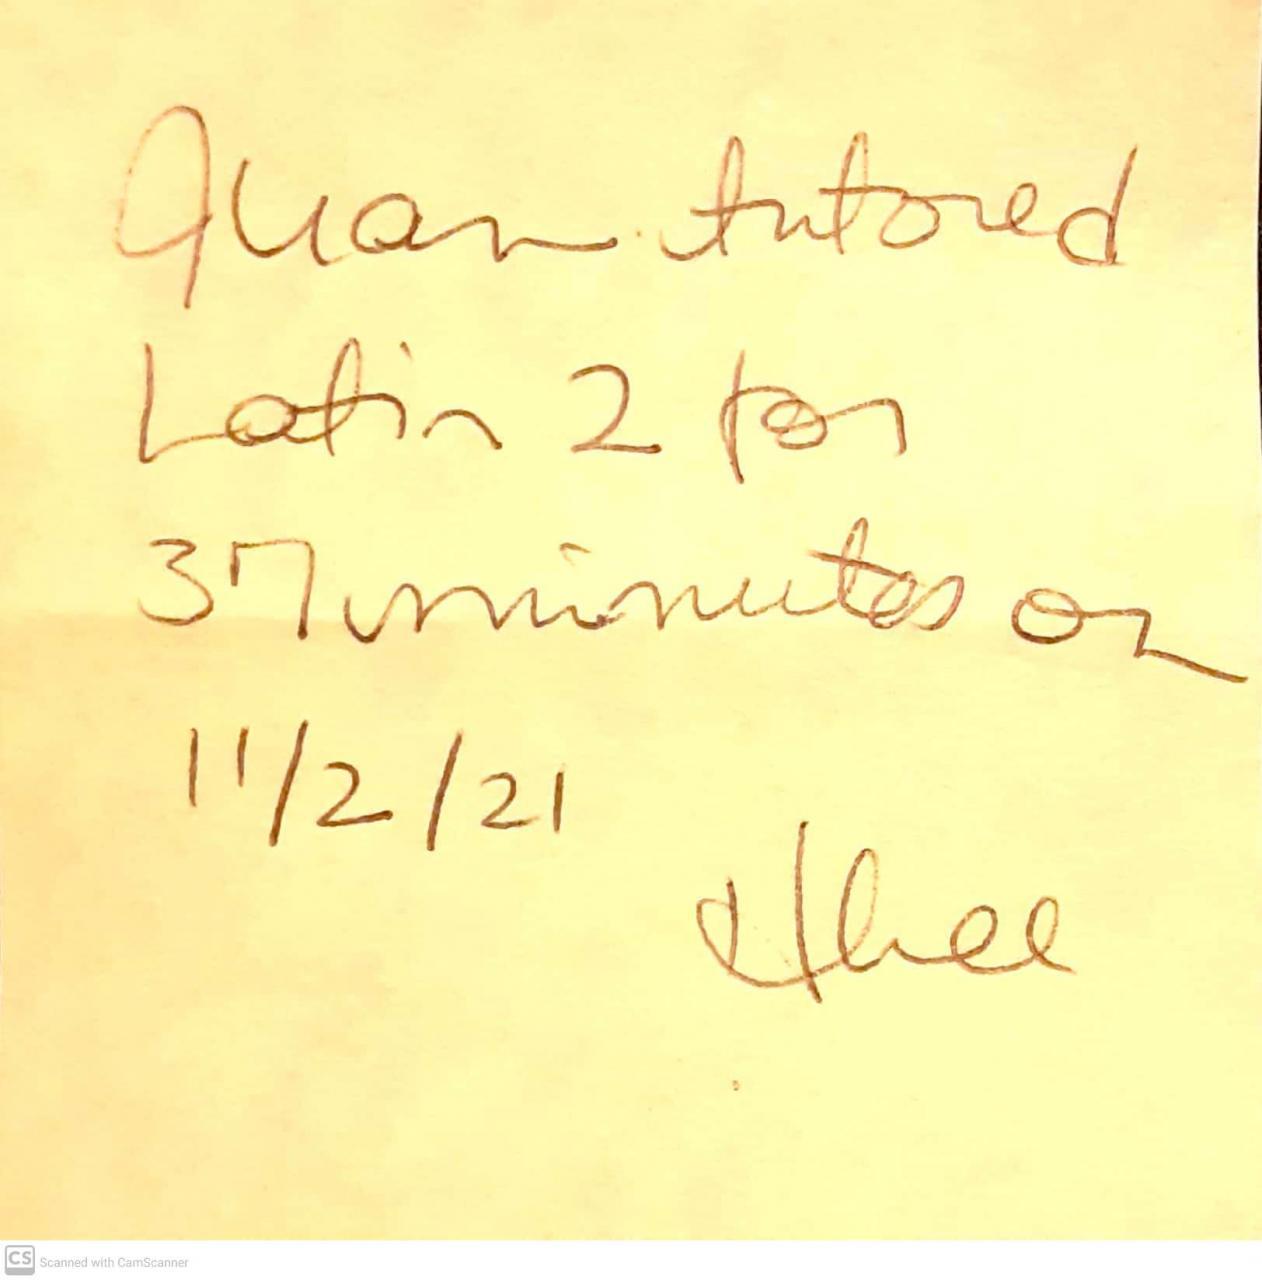 Quan tutored
Latin 2 for
37 minutes on
11/2/21
CS Scanned with CamScanner